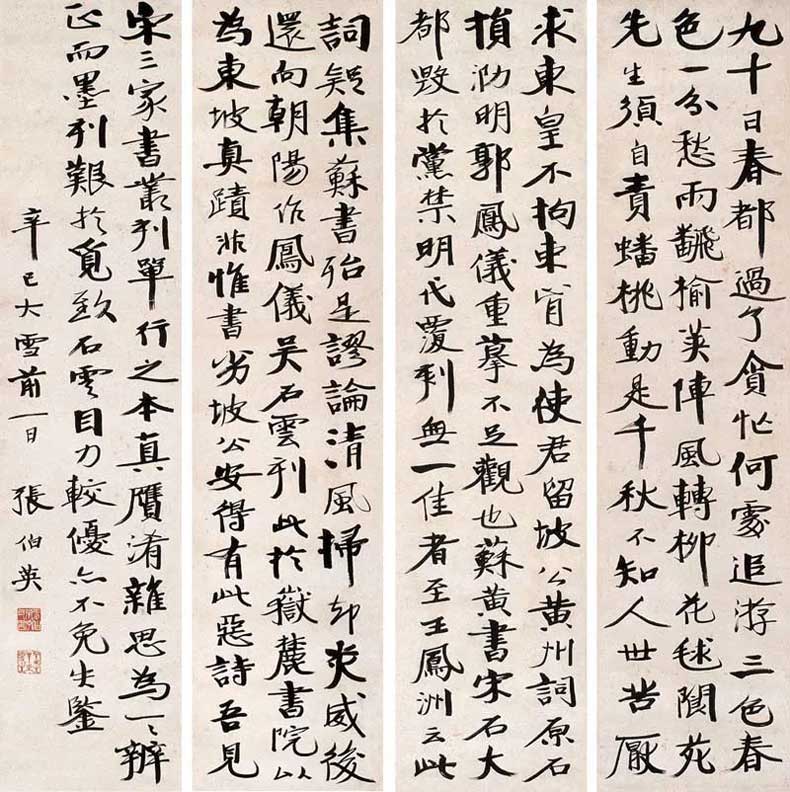 九十日春都過了貪忙何處追游三色春
色一分愁雨飜榆莢陣風轉柳花毬閬苑
先生須自責蟠桃動是千秋不知人世苦厭
求東皇不拘束肯為使君留坡公黄州詞原石
損泐明郭鳳儀重摹不足觀也蘇黄書宋石大
都毀於黨禁明代覆刻無一佳者至王鳳洲云此
詞疑集蘇書殆是謬論清風掃却炎威後
還向朝陽作鳳儀吴石雲刊此於嶽麓書院以
為東坡真蹟非惟書劣坡公安得有此惡詩吾見
宋三家書叢刊單行之本真贗淆雜思為一一辨
正而墨刊艱於覓致石雲目力較優亦不免失鑒
辛巳大雪前一日 張伯英